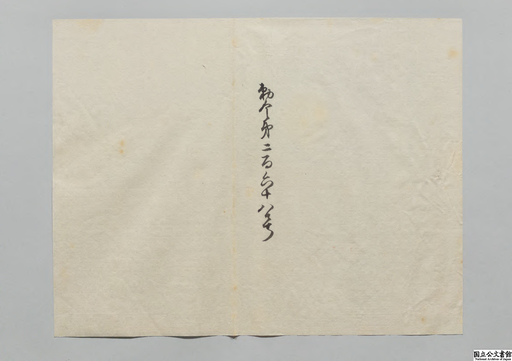 勅令第二百六十八号
国立公文書館
National Archives of Japan